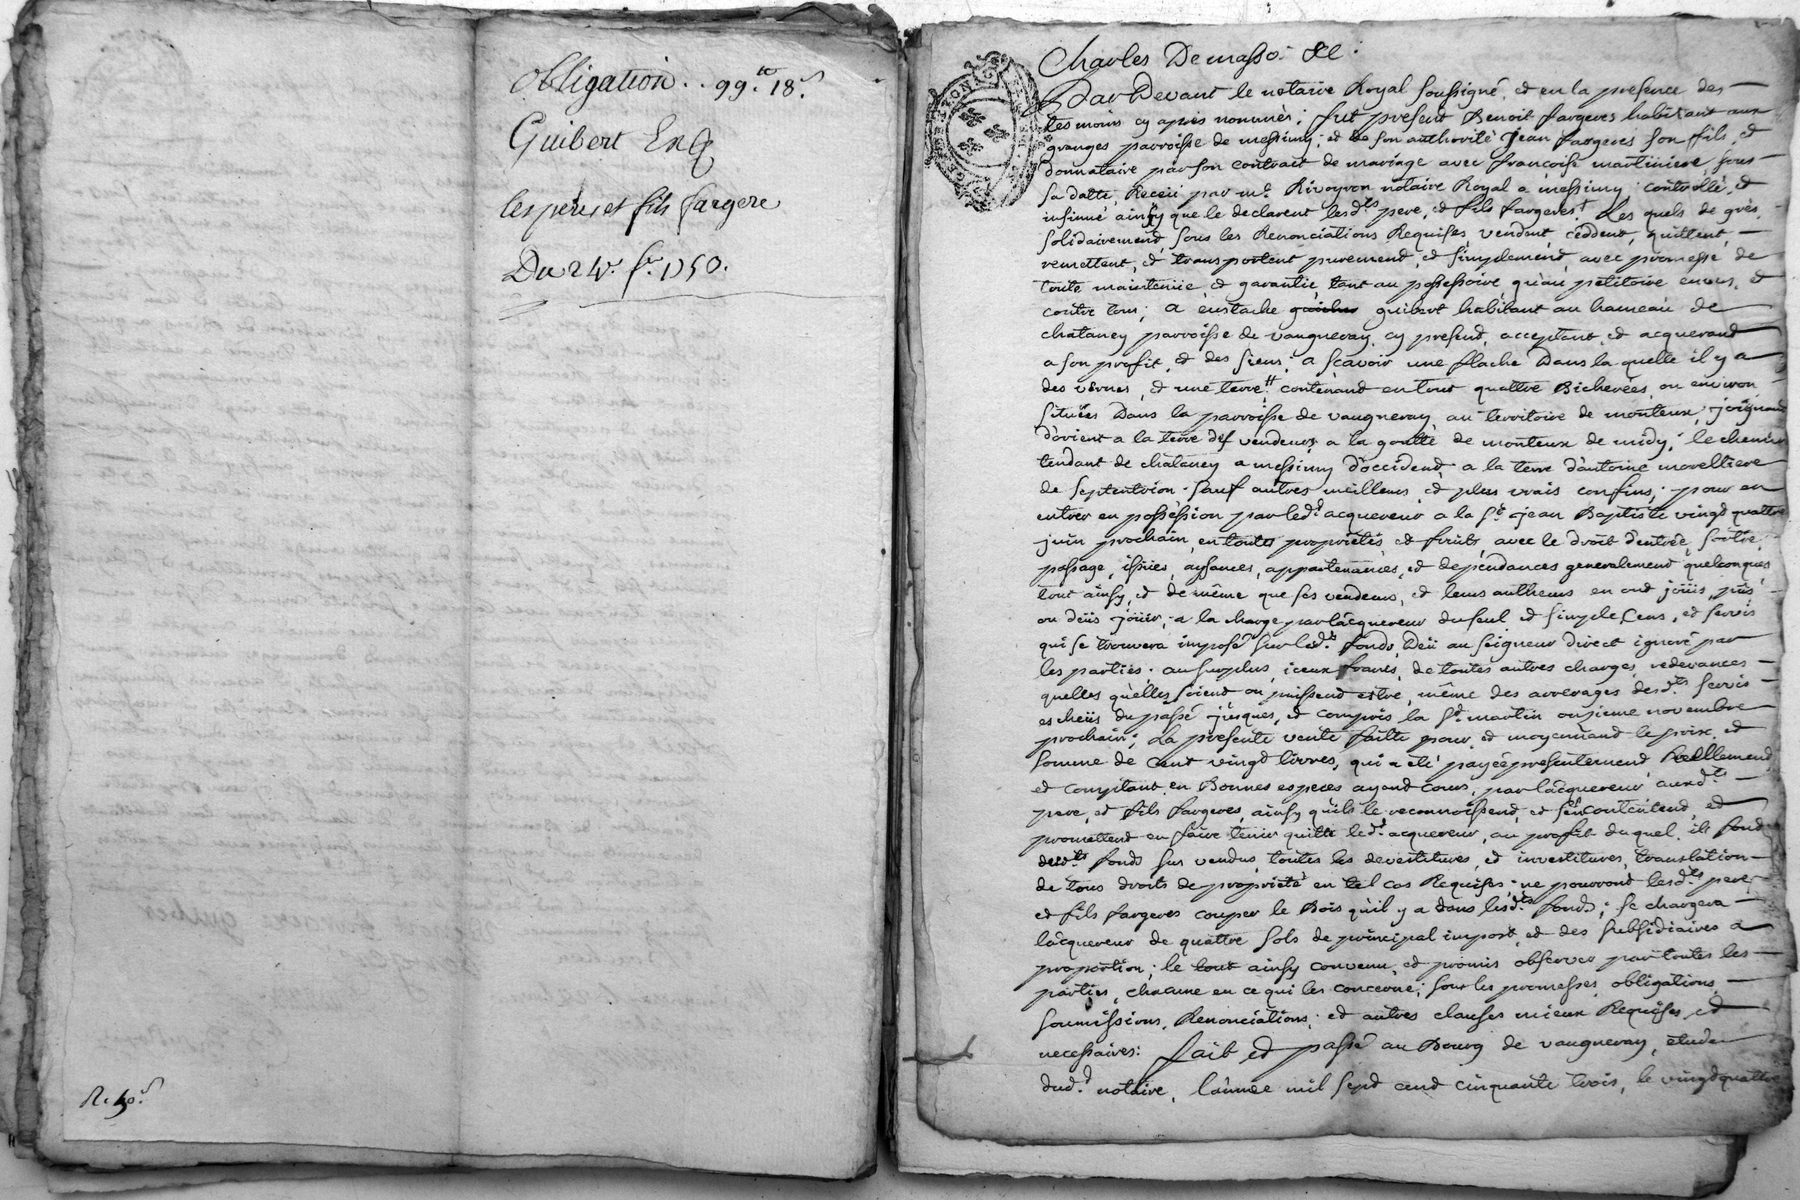 Obligation .. 99.tt 18.s
Guibert Exq
les pere et fils fargere
Du 24e. 1750.
R. 50.s
Charles Demasso. &c.
Pardevant le notaire Royal soussigné, et en la presence des
tesmoins cy apres nommés; fut present Benoit fargeres habitant aux
granges parroisse de messimy; et de son authorité Jean fargeres son fils, et
donnataire par son contrait de mariage avec francoise martiniere, sous
sa datte, Receü par me. Rivoyron notaire Royal a messimy controllé, et
insinué ainsy que le declarent lesd.ts pere, et fils fargeres. Les quels de grés,
solidairement, sous les Renonciations Requises, vendent, cèddent, quittent,
remettent, et transportent purement, et simplement, avec promesse de
toute maintenüe et garantie, tant au possessoire, qu'au petitoire envers, et
contre tous; a eustache guibert habitant au hameau de
chataney parroisse de vaugneray, cy present, acceptant, et acquerant
a son profit, et des siens; a scavoir une flache Dans la quelle il y a
des vernes, et une terre contenand en tout quattre Bicherées, ou environ
situées Dans la parroisse de vaugneray, au territoire de monteux; joignant
d'orient a la terre des vendeurs, a la goutte de monteux de midy; le chemin
tendant de chataney a messimy d'occident, a la terre d'antoine morelliere
de septentrion. Sauf autres meilleurs, et plus vrais confins; pour en
entrer en possession par led.t acquereur a la St. jean Baptiste vingt quattre
juin prochain, en toutes proprietés et fruits, avec le droit d'entrée, sortie,
passage, issües, aysances, appartenances, et dependances generalement quelconques,
tout ainsy, et de même que ses vendeurs, et leurs autheurs en ont joüis, pûs
ou deüs joüir; a la charge par l'acquereur du seul et simple Cens, et servis
qui se trouvera imposé sur lesd.ts fonds, Deü au seigneur direct ignoré par
les parties; au surplus iceux francs, de toutes autres charges, redevances
quelles qu'elles soient ou puissent estre, même des arrerages desd.ts servis
escheüs du passé jusques, et compris la St. martin onzieme novembre
prochain; La presente vente faitte pour, et moyennant le prix, et
somme de Cent vingt livres, qui a eté payée presentement Reellement
et comptant en Bonnes especes ayant cours, par l'acquereur auxd.ts
pere, et fils fargeres, ainsy qu'ils le reconnoissent, et s'en contentent, et
promettent en faire tenir quitte led.t acquereur, au profit du quel ils font
desd.ts fonds sus vendus, toutes les devestitures, et investitures, translation
de tous droits de proprieté en tel cas Requises; ne pourront lesd.ts pere,
et fils fargeres couper le Bois qu'il y a dans lesd.ts fonds; se chargera
l'acquereur de quattre sols de principal impost, et des subsidiaires a
proportion; le tout ainsy convenu, et promis observer par toutes les
parties, chacune en ce qui les concerne; sous les promesses, obligations,
soumissions, Renonciations, et autres clauses mieux Requises, et
necessaires: fait et passé au Bourg de vaugneray, etude
dud.t notaire, l'année mil sept cent cinquante trois, le vingt quattre